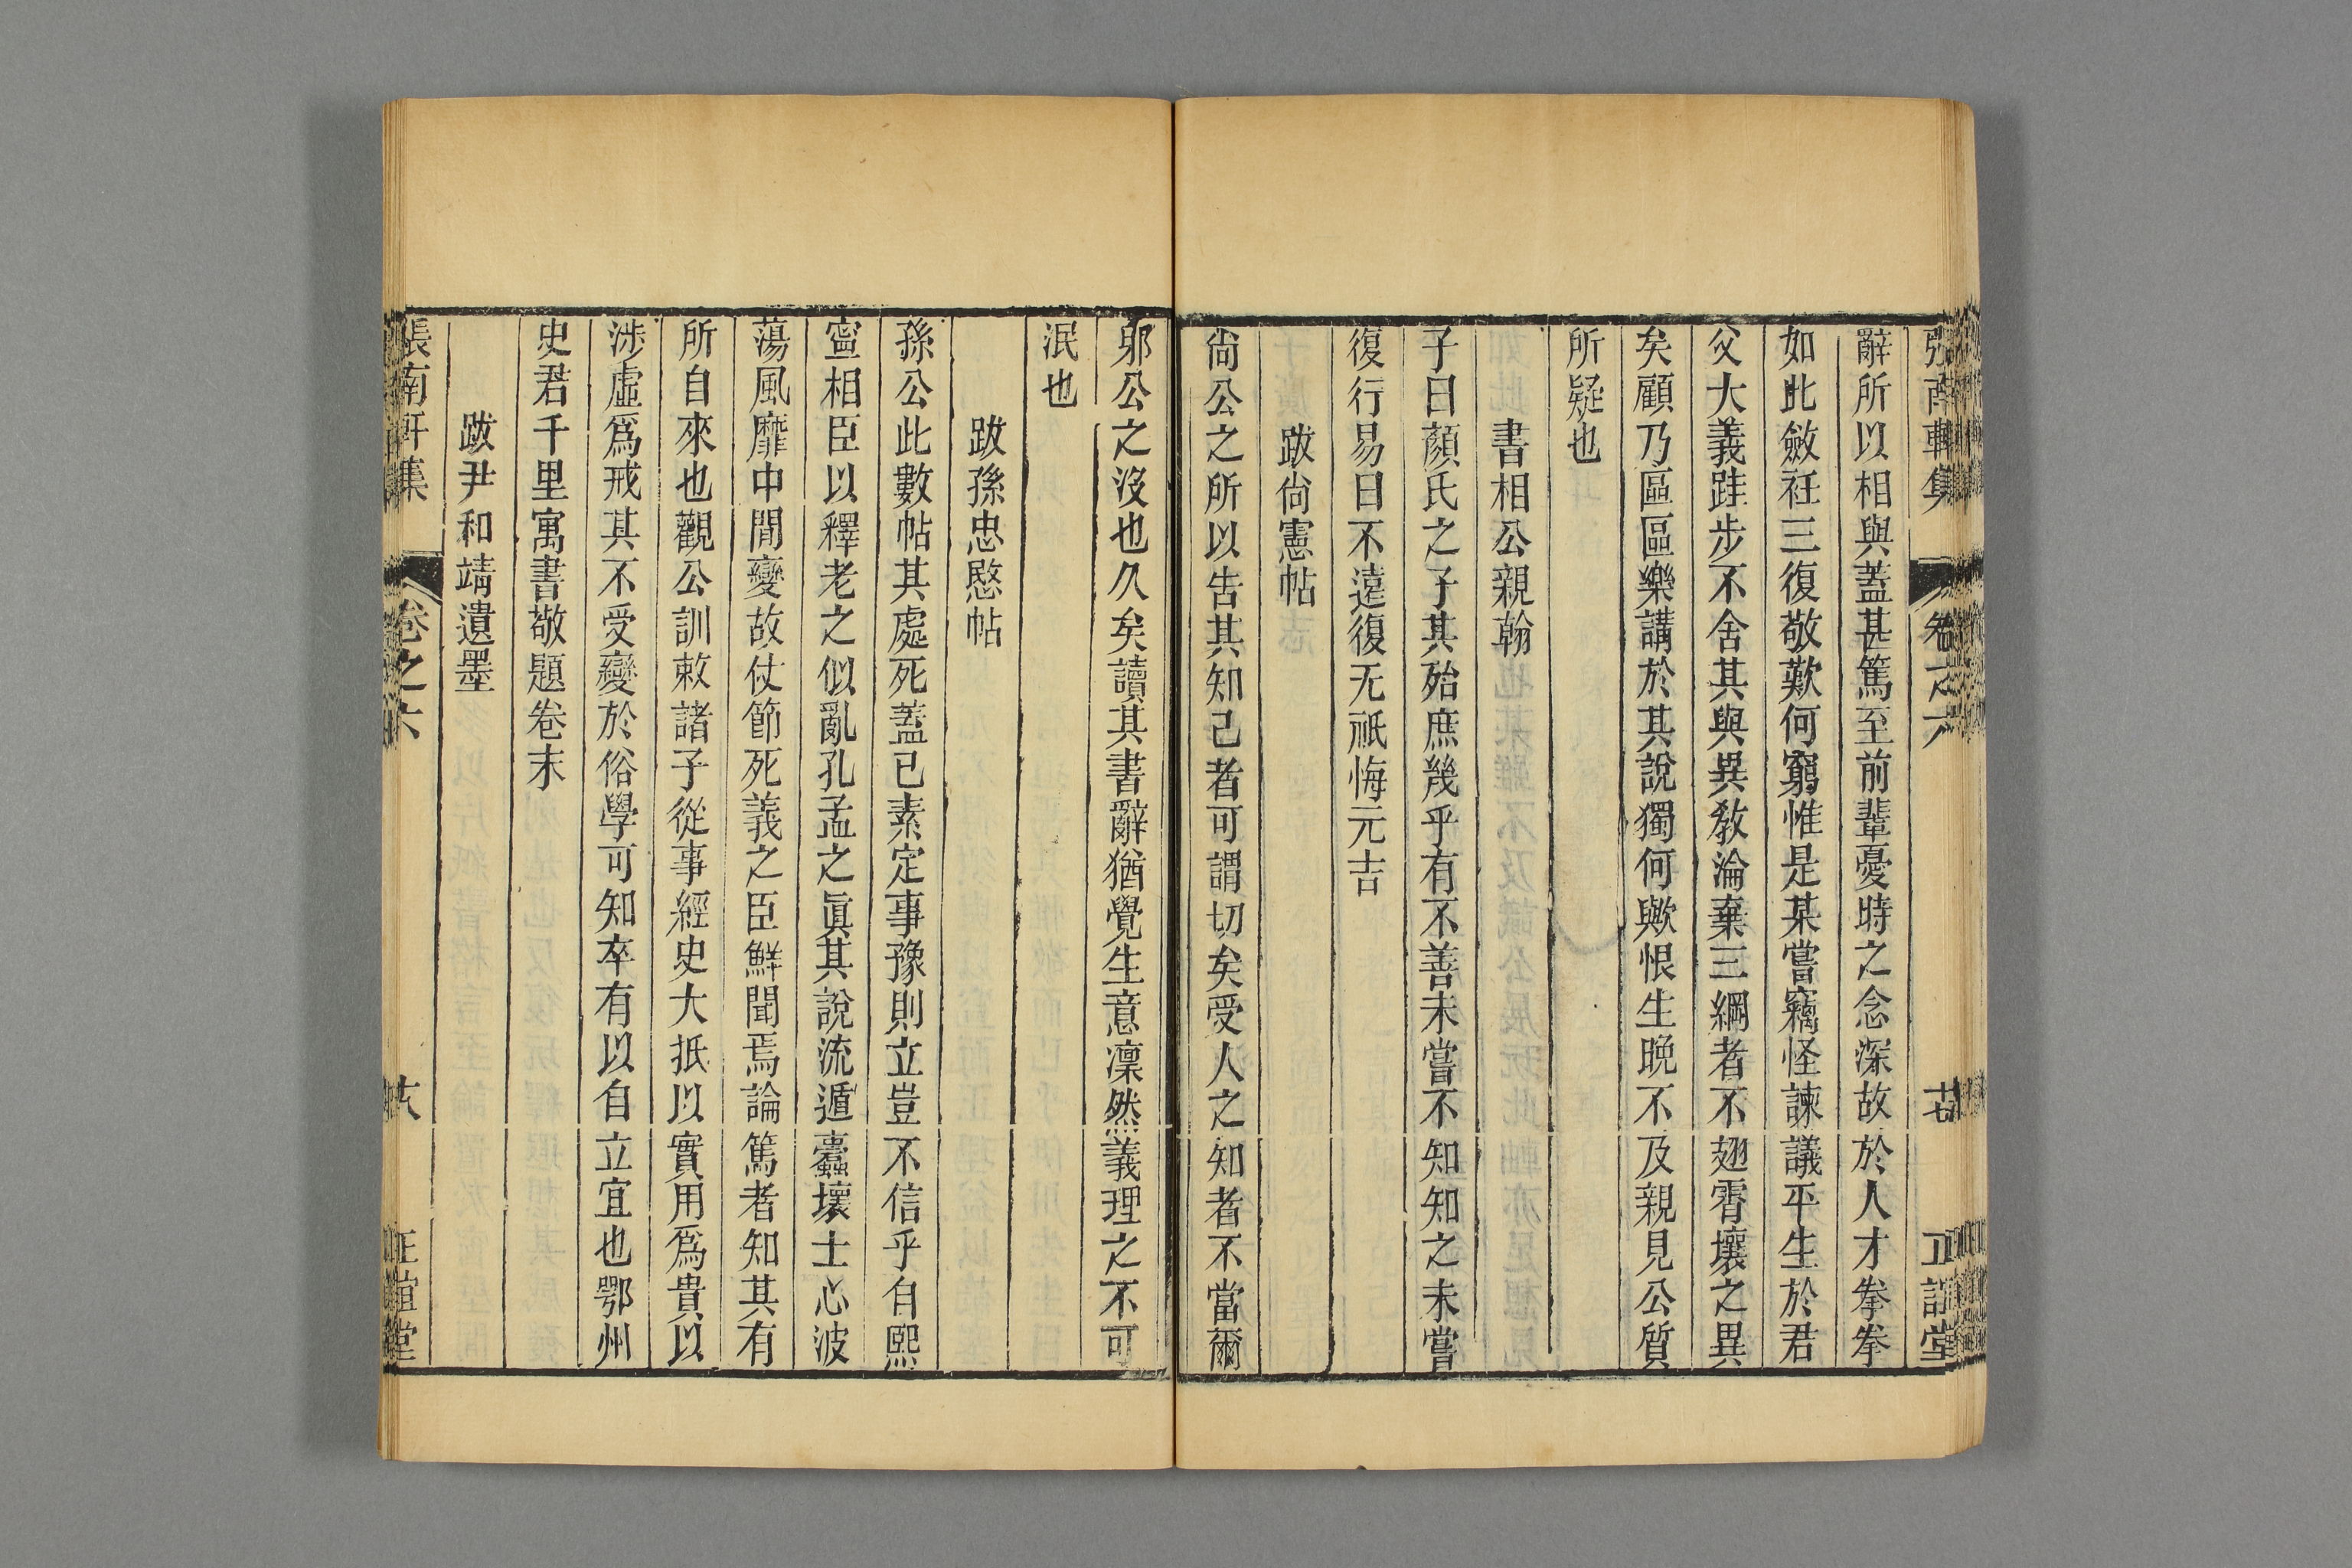 張南軒集 卷之六 十七 正誼堂
辭所以相與蓋甚篤至前輩憂時之念深故於人才拳拳
如此斂衽三復敬歎何窮惟是某嘗竊怪諫議平生於君
父大義跬步不舍其與異教淪棄三綱者不翅霄壤之異
矣顧乃區區樂講於其說獨何歟恨生晚不及親見公質
所疑也
書相公親翰
子曰顏氏之子其殆庶幾乎有不善未嘗不知知之未嘗
復行易曰不遠復无祇悔元吉
跋尙憲帖
尙公之所以告其知己者可謂切矣受人之知者不當爾
邪公之沒也久矣讀其書辭猶覺生意凜然義理之不可
泯也
跋孫忠愍帖
孫公此數帖其處死蓋已素定事豫則立豈不信乎自熙
寧相臣以釋老之似亂孔孟之眞其說流遁蠹壞士心波
蕩風靡中閒變故仗節死義之臣鮮聞焉論篤者知其有
所自來也觀公訓敕諸子從事經史大抵以實用爲貴以
涉虛爲戒其不受變於俗學可知卒有以自立宜也鄂州
史君千里寓書敬題卷末
跋尹和靖遺墨
張南軒集 卷之六 十八 正誼堂